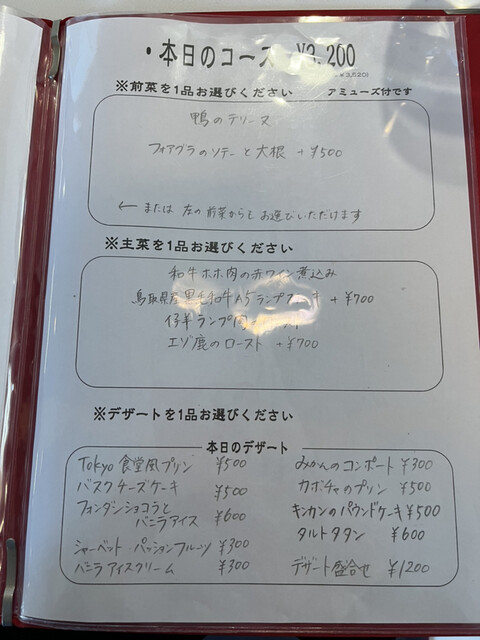 ・本日のコース ¥3,200
¥3,520)
※前菜を1品お選びください アミューズ付です
鴨のテリーヌ
フォアグラのソテーと大根 +¥500
← または 左の前菜からもお選びいただけます
※主菜を1品お選びください
和牛ホホ肉の赤ワイン煮込み
鳥取県産黒毛和牛A5ランプステーキ +¥700
仔羊ランプ肉
エゾ鹿のロースト +¥700
※デザートを1品お選びください
本日のデザート
Tokyo食堂風プリン ¥500
バスクチーズケーキ ¥500
フォンダンショコラと
バニラアイス ¥600
シャーベット・パッションフルーツ ¥300
バニラアイスクリーム ¥300
みかんのコンポート ¥300
カボチャのプリン ¥500
キンカンのパウンドケーキ ¥500
タルトタタン ¥600
デザート盛合せ ¥1200